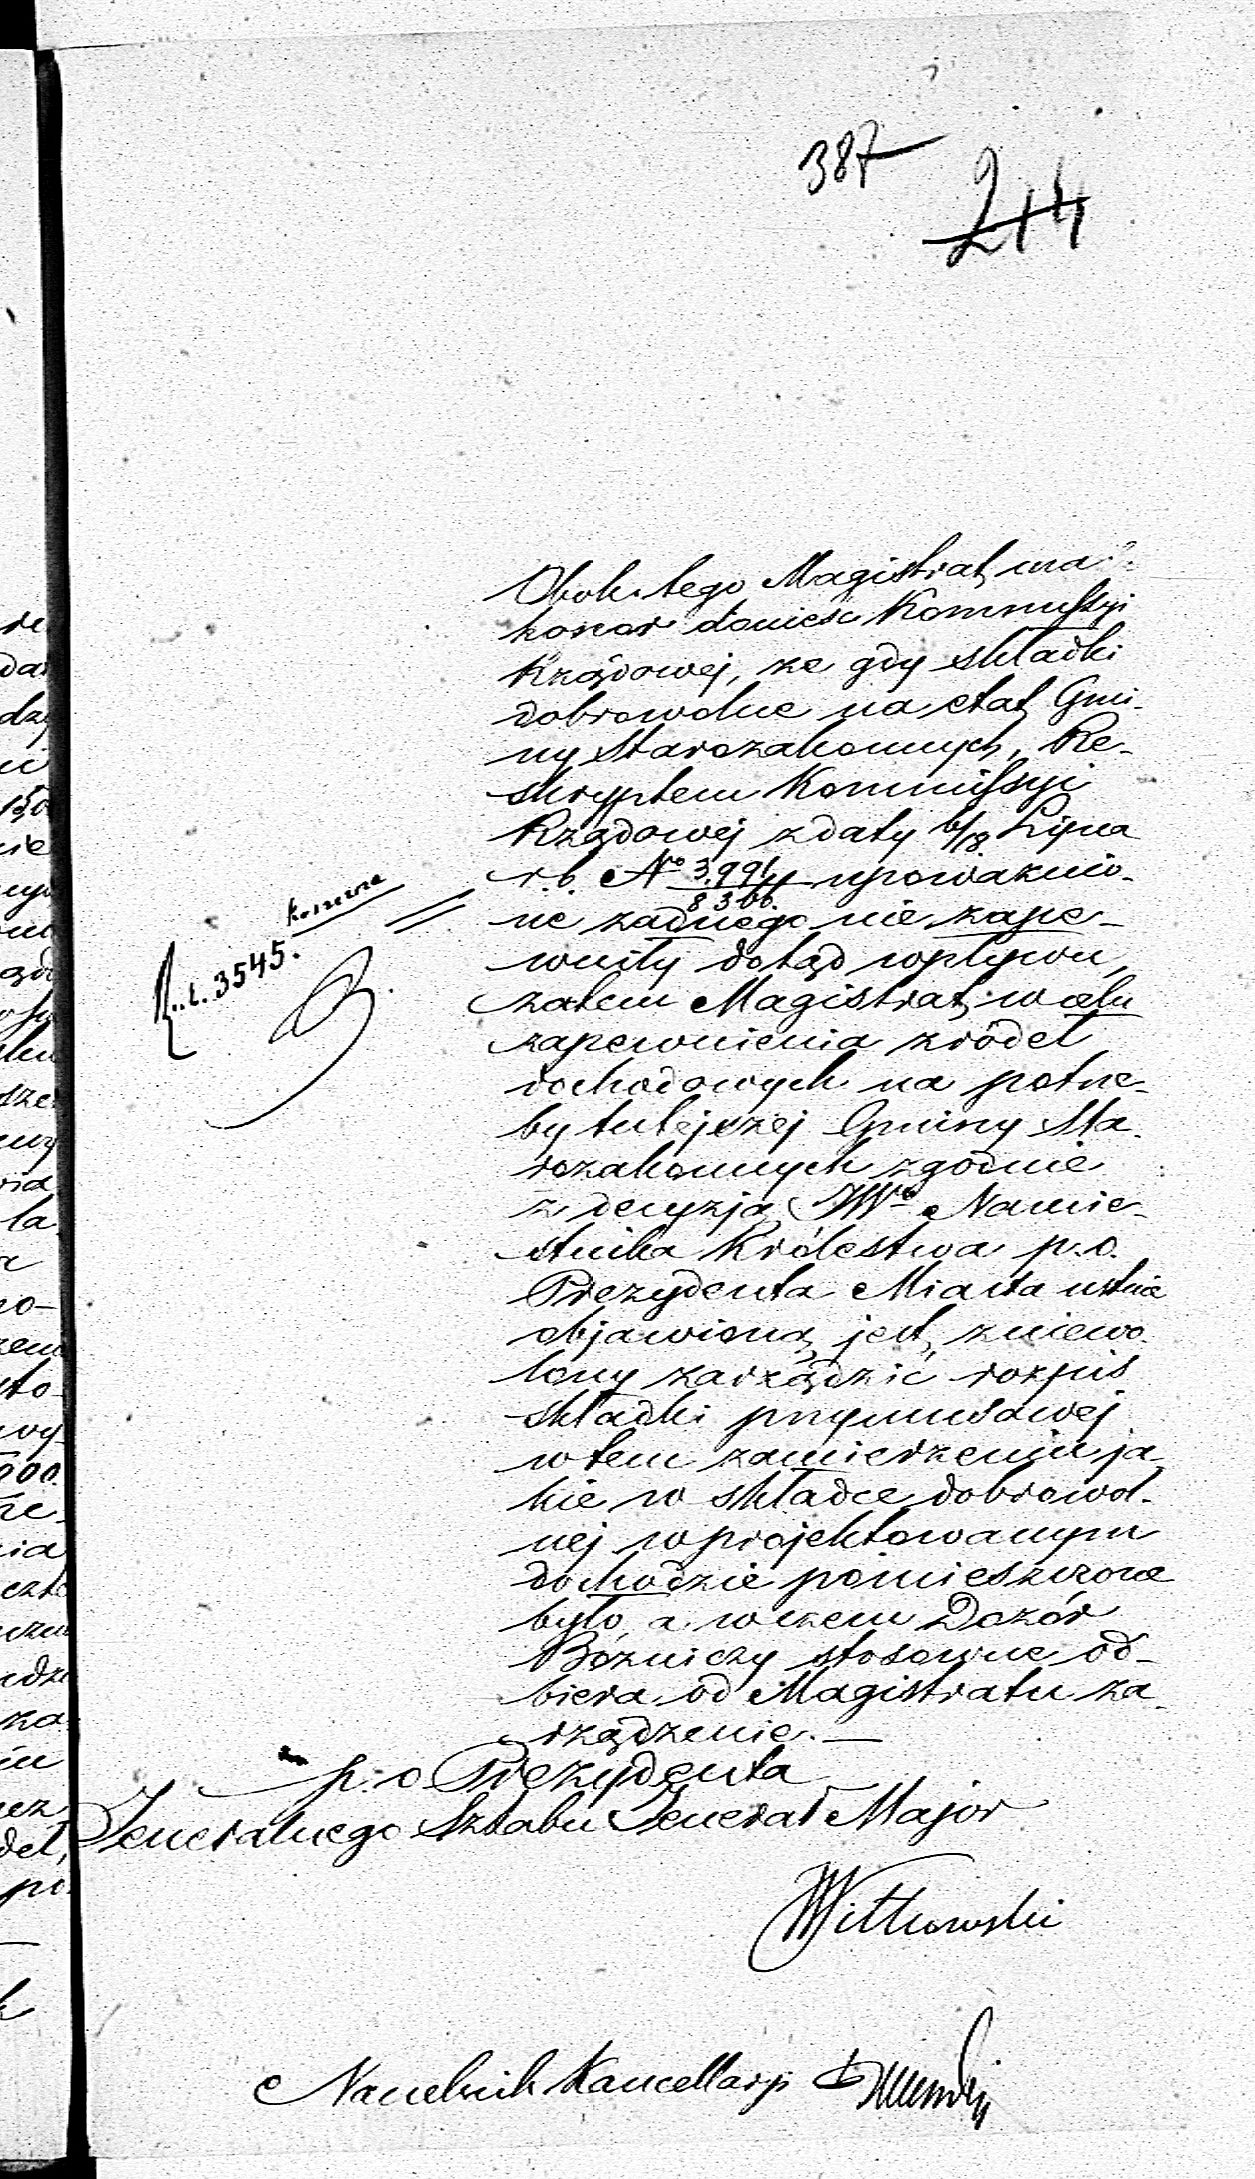 387
214
Obok tego Magistrat ma
honor donieść Kommissyi
Rządowej, że gdy składki
dobrowolne na etat Gmi-
ny Starozakonnych, Re-
skryptem Kommissyi
Rządowej z daty 6/18 Lipca
r. b. No 3.991/8300. upoważnio-
ne żadnego nie zape-
wniły dotąd wpływu,
zatem Magistrat w celu
zapewnienia źródeł
dochodowych na potrze-
by tutejszej Gminy Sta-
rozakonnych zgodnie
z decyzją JWo Namie-
stnika Królestwa p. o.
Prezydenta Miasta ustnie
objawioną jest zniewo-
lony zarządzić rozpis
składki przymusowej
w tem zamierzeniu ja-
kie w składce dobrowol-
nej w projektowanym
dochodzie pomieszczone
było, a w czem Dozór
Bóżniczy stosowne od-
biera od Magistratu za-
rządzenie. —
3545.
p. o. Prezydenta
Jeneralnego Sztabu Jenerał Major
Witkowski
Naczelnik Kancellaryi